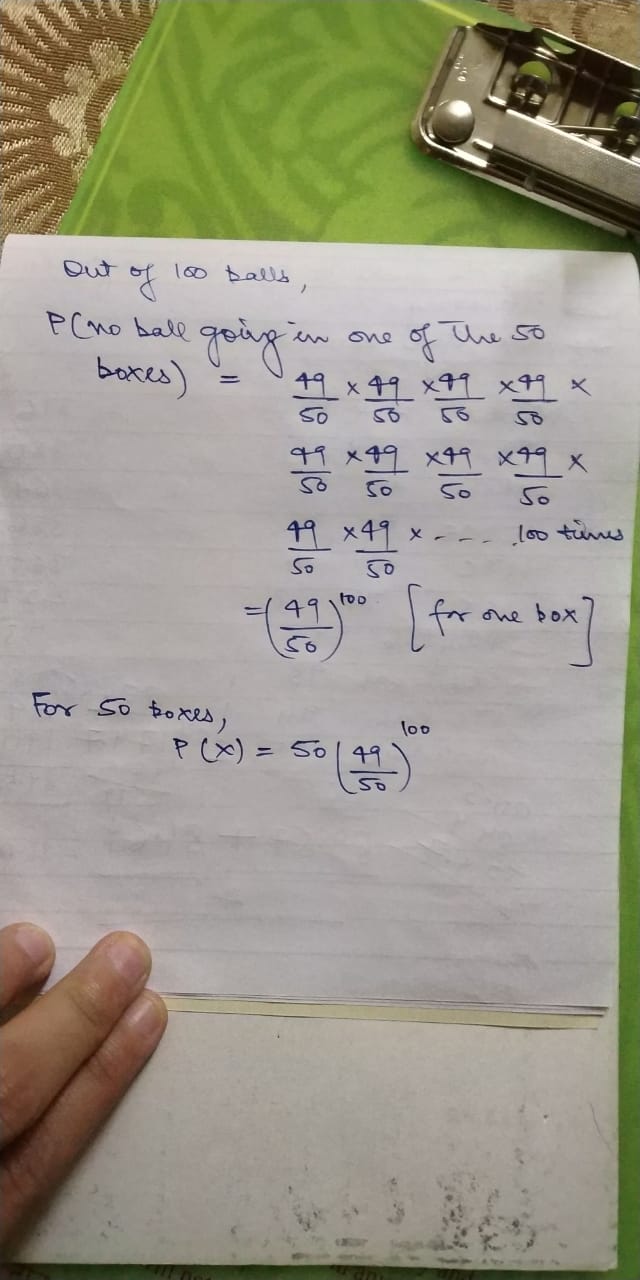 Out of 100 balls,
P(no ball going in one of the 50
boxes) = 49/50 × 49/50 × 49/50 × 49/50 ×
49/50 × 49/50 × 49/50 × 49/50 ×
49/50 × 49/50 × - - - . 100 times
= (49/50)^100 [for one box]
For 50 boxes,
P(X) = 50 (49/50)^100